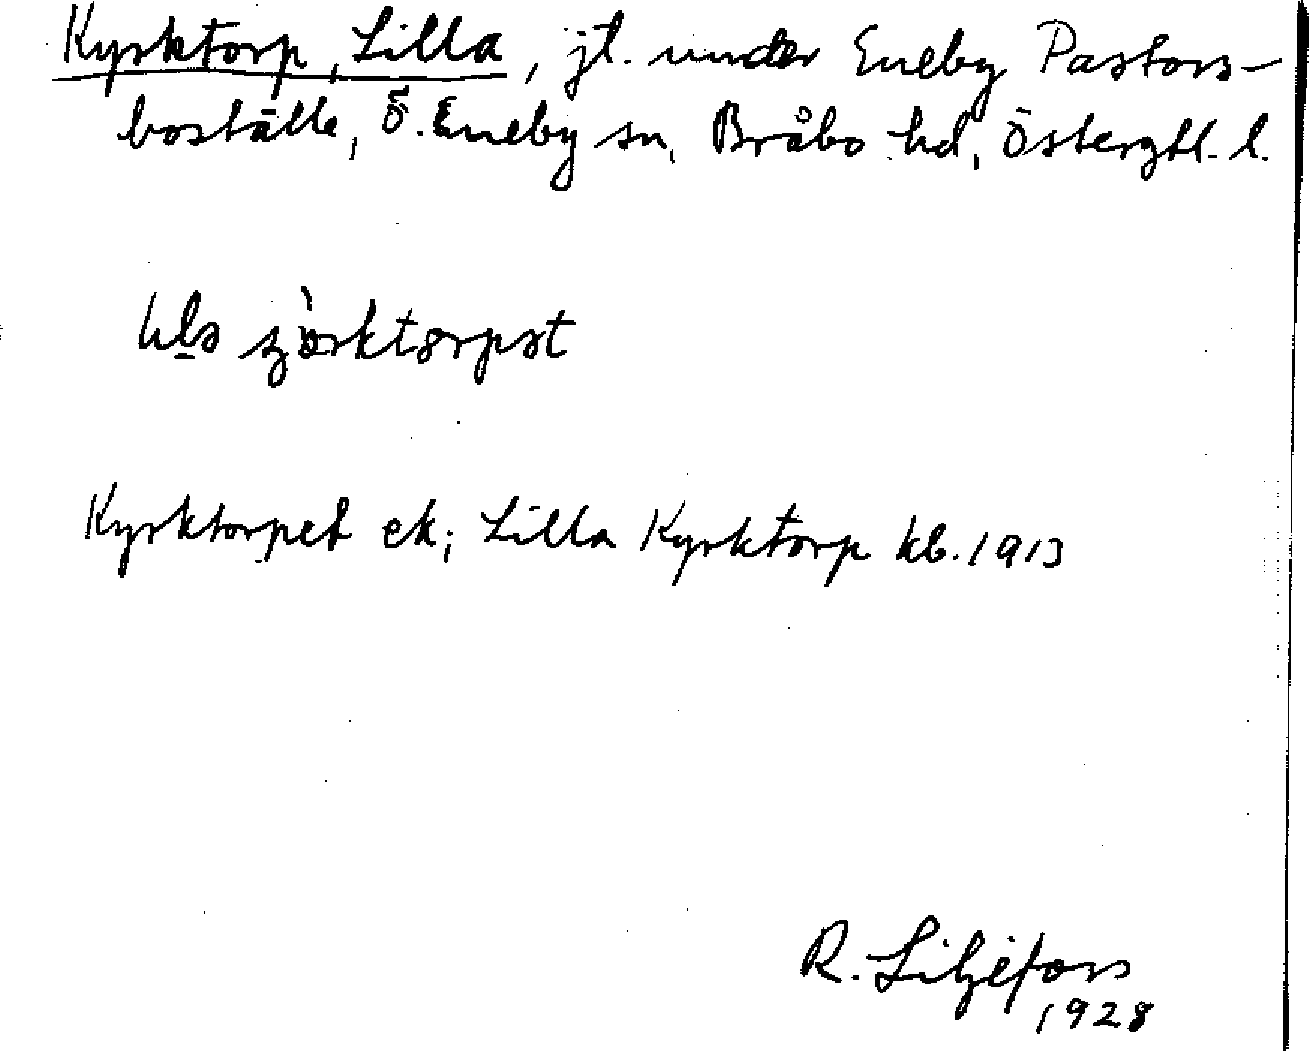 Kyrktorp, Lilla, jl. under Eneby Pastors-
boställe, Ö. Eneby sn, Bråbo hd, Östergtl. l.
Kyrktorpet ek; Lilla Kyrktorp kb. 1913
R. Liljefors
1928